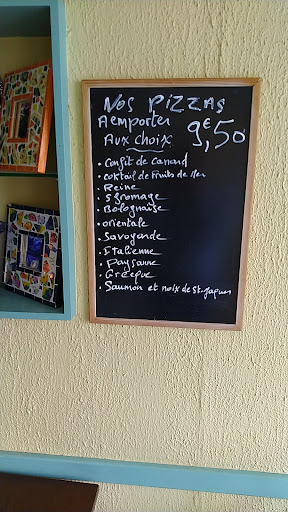 Nos PIZZAS
A emporter
Aux choix 9€,50
• Confit de canard
• coktail de fruits de Mer
• Reine
• 5 fromage
• Bolognaise
• orientale
• Savoyarde
• Italienne
• Paysanne
• Grecque
• Saumon et noix de St-Jaques